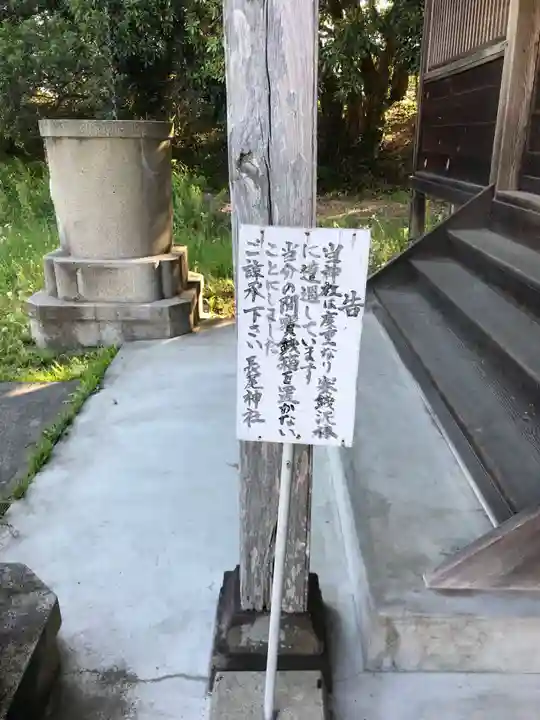 告
当神社は度重なり賽銭泥棒
に遭遇しています
当分の間賽銭箱を置かない
ことにしました
ご諒承下さい 長尾神社